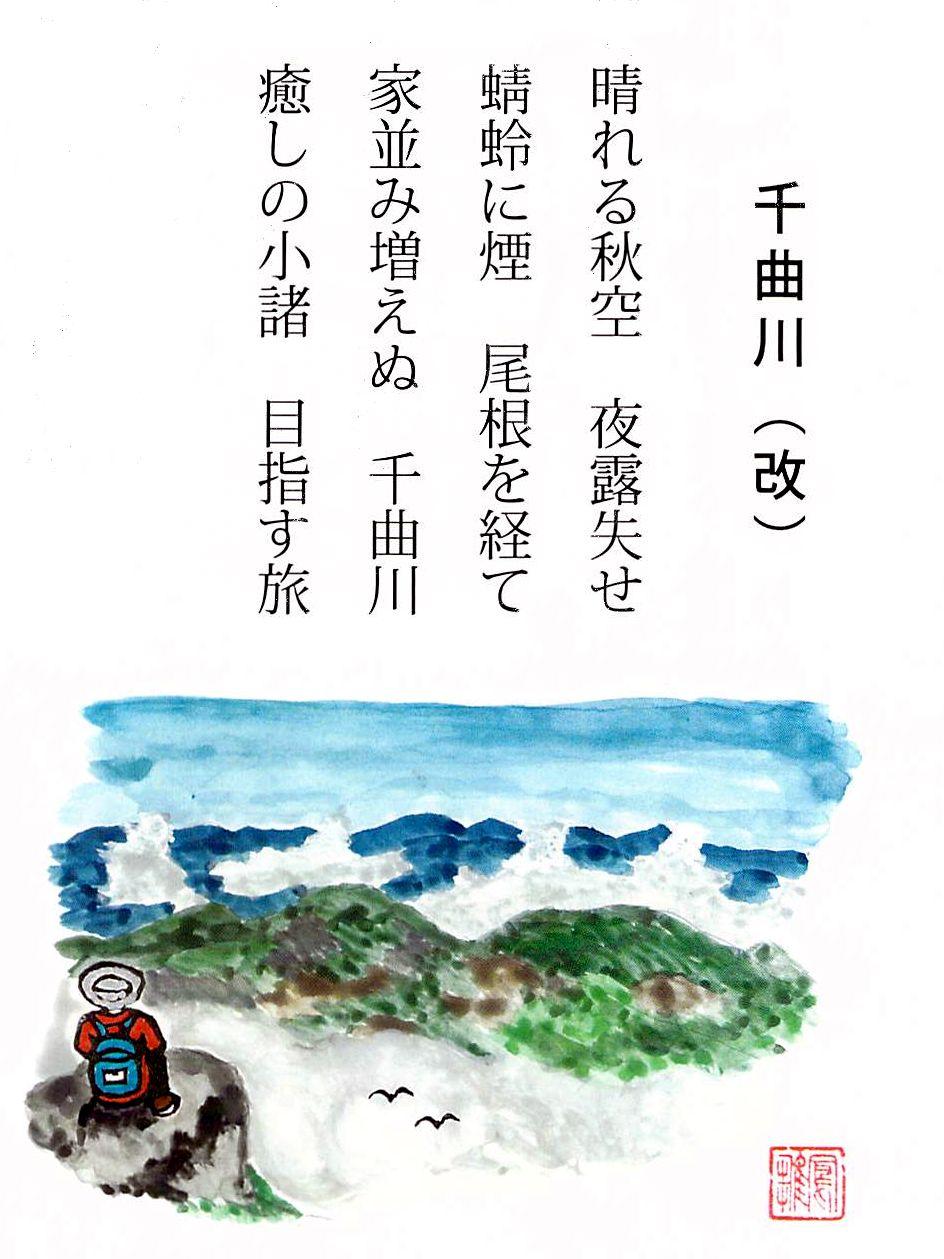 千曲川（改）
晴れる秋空　夜露失せ
蜻蛉に煙　尾根を経て
家並み増えぬ　千曲川
癒しの小諸　目指す旅